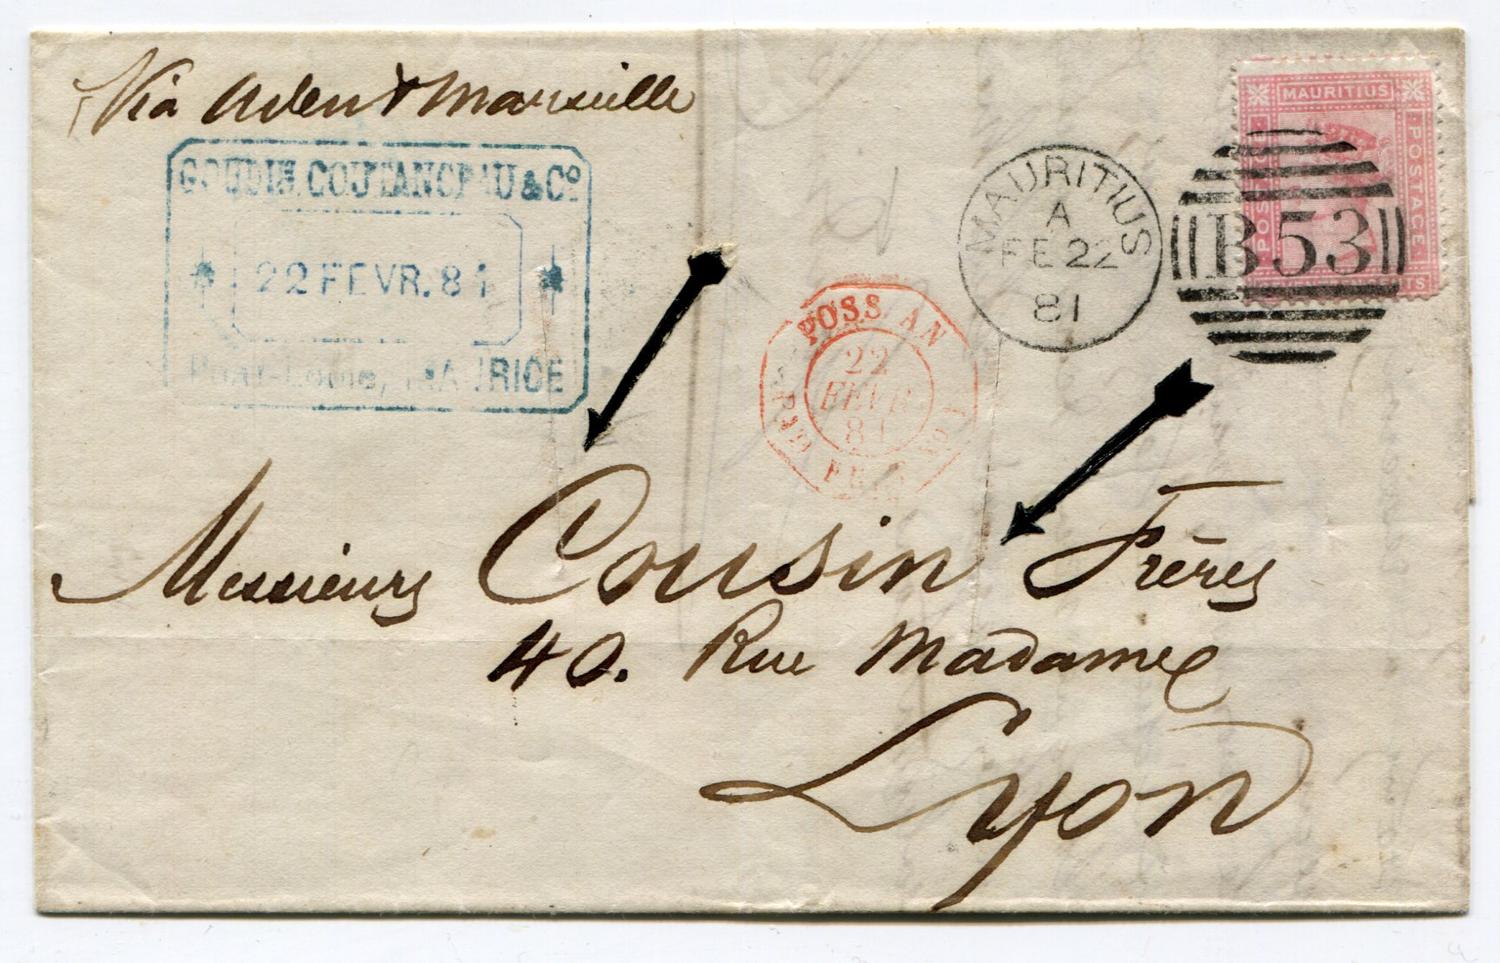 Via Aden & Marseille
GOUDIN, COUTANCEAU & Co
22 FEVR. 81
PORT-LOUIS, MAURICE
POSS AN
22
FEVR
81
MAURITIUS
A
FE 22
81
B53
MAURITIUS
POSTAGE
Messieurs Cousin Frères
40. Rue Madame
Lyon